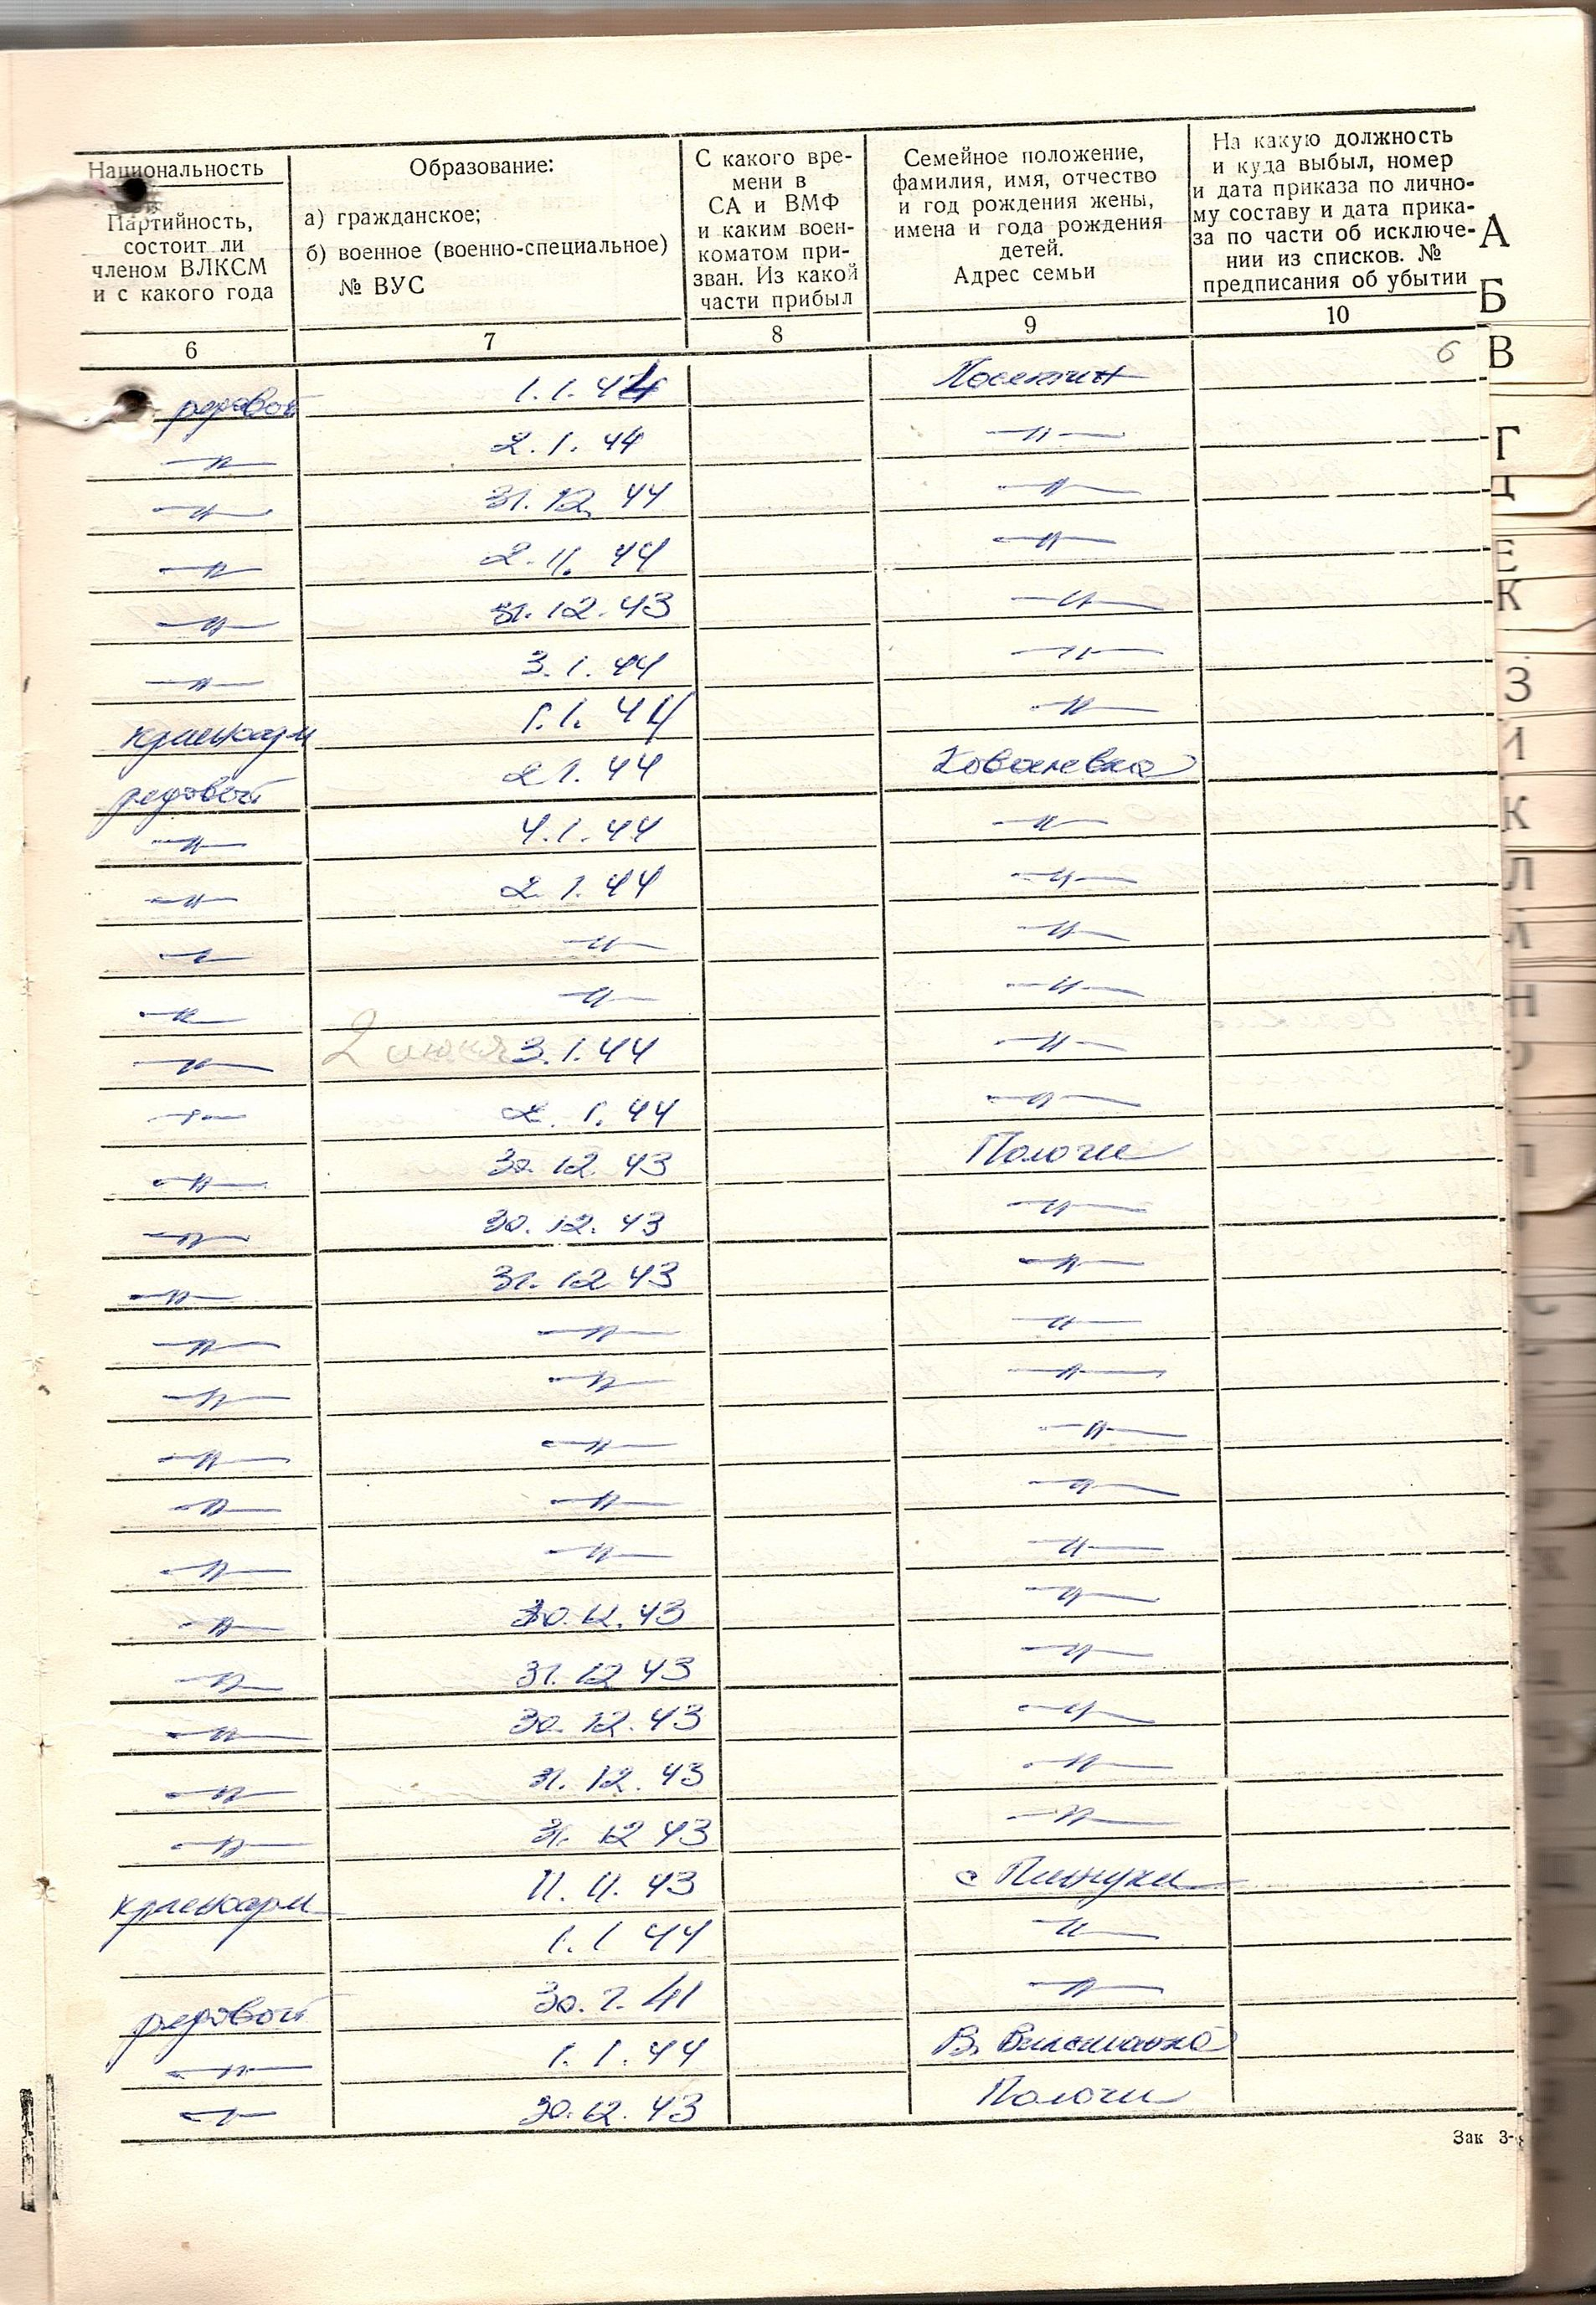 Национальность
Партийность,
состоит ли
членом ВЛКСМ
и с какого года
Образование:
а) гражданское;
б) военное (военно-специальное)
№ ВУС
С какого вре-
мени в
СА и ВМФ
и каким воен-
коматом при-
зван. Из какой
части прибыл
Семейное положение,
фамилия, имя, отчество
и год рождения жены,
имена и года рождения
детей.
Адрес семьи
На какую должность
и куда выбыл, номер
и дата приказа по лично-
му составу и дата прика-
за по части об исключе-
нии из списков. №
предписания об убытии
6 7 8 9 10
6
рядовой 1.1.44
—"— 2.1.44 —"—
—"— 31.12.44 —"—
—"— 2.11.44 —"—
—"— 31.12.43 —"—
—"— 3.1.44 —"—
красноарм 1.1.44 —"—
рядовой 2.1.44 Ковалевка
—"— 4.1.44 —"—
—"— 2.1.44 —"—
—"— —"— —"—
—"— —"— —"—
—"— 2 июня 3.1.44 —"—
—"— 2.1.44 —"—
—"— 30.12.43 Пологи
—"— 30.12.43 —"—
—"— 31.12.43 —"—
—"— —"— —"—
—"— —"— —"—
—"— —"— —"—
—"— —"— —"—
—"— —"— —"—
—"— 30.12.43 —"—
—"— 31.12.43 —"—
—"— 30.12.43 —"—
—"— 31.12.43 —"—
—"— 31.12.43 —"—
красноарм 11.11.43 с Пинчуки
1.1.44 —"—
рядовой 30.7.41 —"—
—"— 1.1.44 В.
—"— 30.12.43 Пологи
Зак 3-
А
Б
В
Г
Д
Е
К
З
И
К
Л
Н